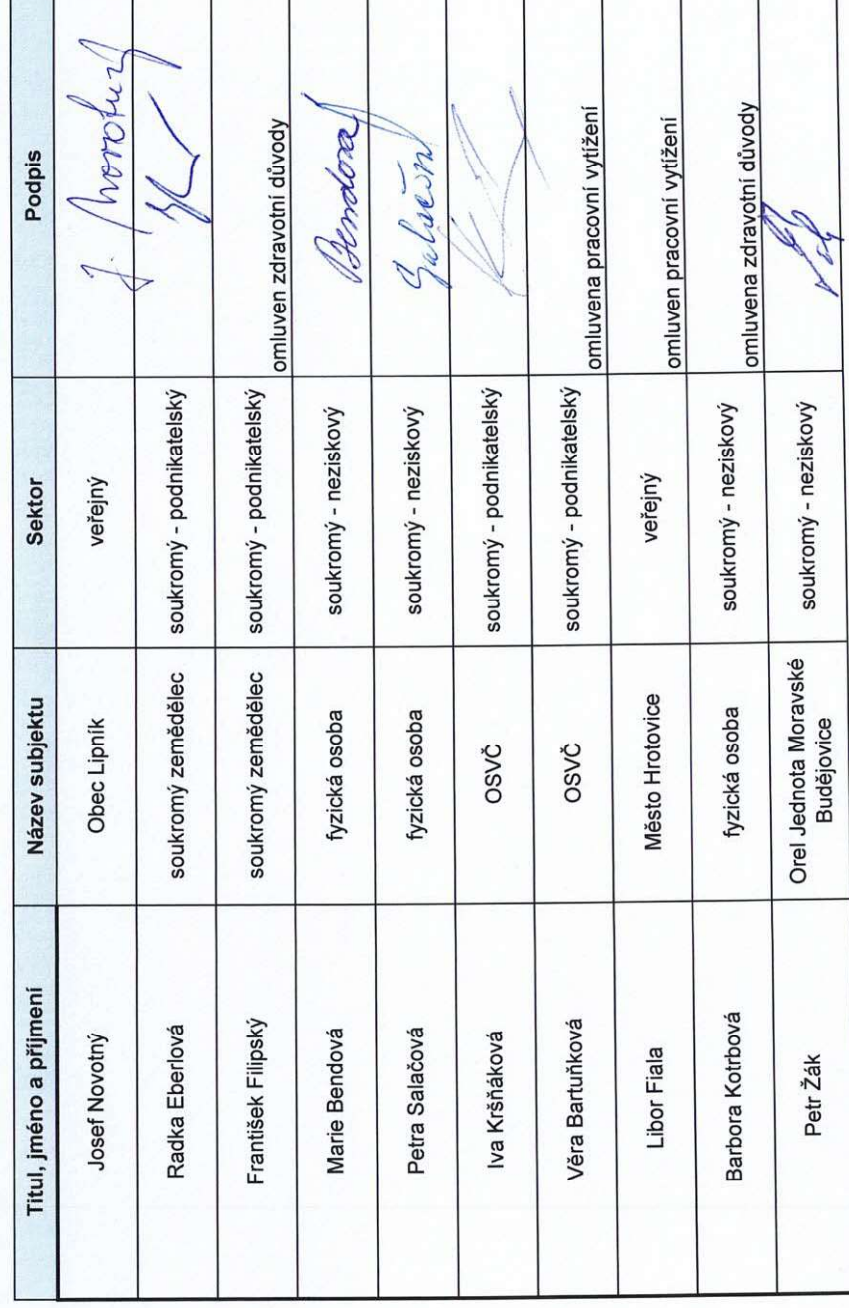 Titul, jméno a příjmení Název subjektu Sektor Podpis
Josef Novotný Obec Lipník veřejný J. Novotný
Radka Eberlová soukromý zemědělec soukromý - podnikatelský
František Filipský soukromý zemědělec soukromý - podnikatelský omluven zdravotní důvody
Marie Bendová fyzická osoba soukromý - neziskový Bendová
Petra Salačová fyzická osoba soukromý - neziskový
Iva Kršňáková OSVČ soukromý - podnikatelský
Věra Bartuňková OSVČ soukromý - podnikatelský omluvena pracovní vytížení
Libor Fiala Město Hrotovice veřejný omluven pracovní vytížení
Barbora Kotrbová fyzická osoba soukromý - neziskový omluvena zdravotní důvody
Petr Žák Orel Jednota Moravské
Budějovice soukromý - neziskový